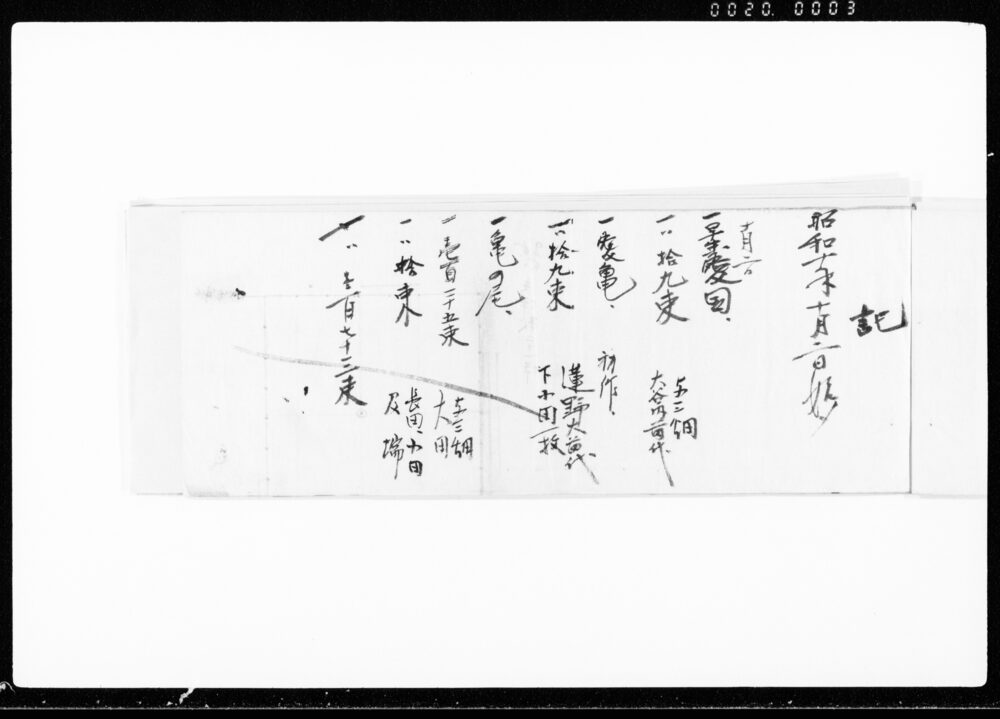 0020. 0003
記
昭和十年十月二日始
十月二日
一早生愛国、
一〃拾九束
与三畑
大谷内苗代
一愛亀、
初作、
一〃拾九束
蓮野大苗代
下小田一枚
一亀の尾、
一壱百二十五束
与三畑
大田
一〃拾束
長田、小田
及端
〃壱百七十三束